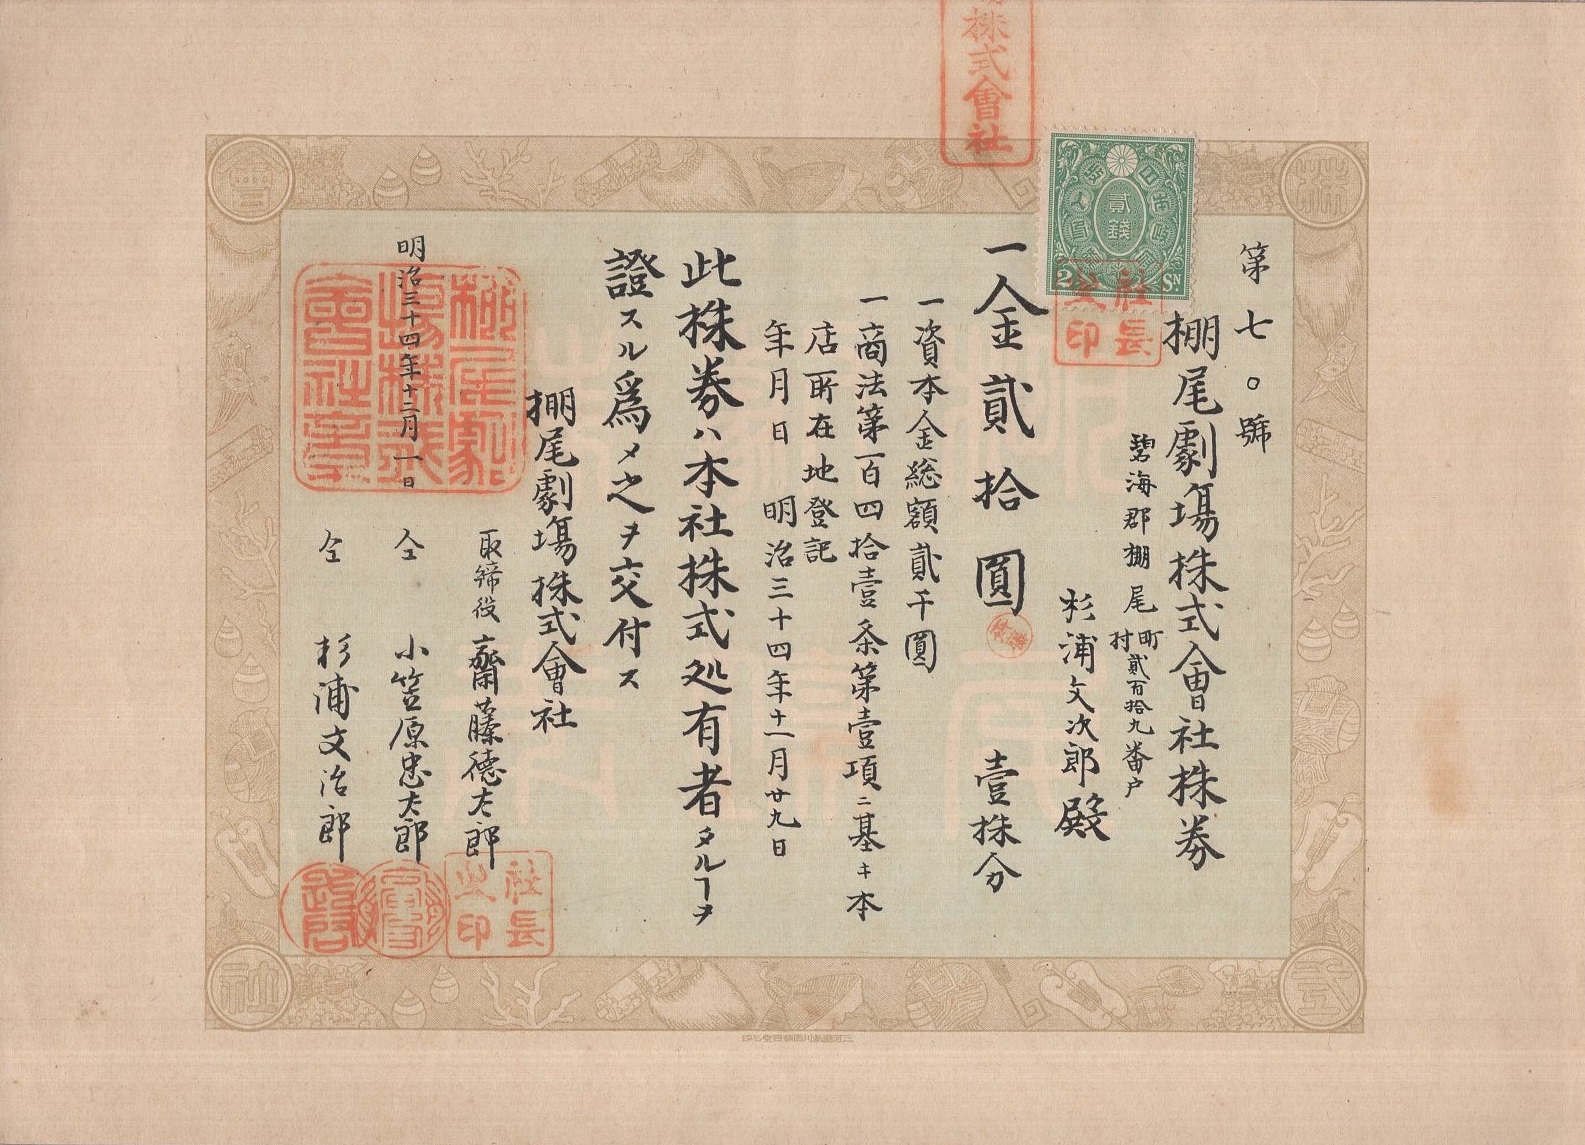 第七〇號
棚尾劇塲株式會社株券
碧海郡棚尾町村貳百拾九番戸
杉浦文次郎殿
一金貳拾圓 壹株分
一資本金総額貳千圓
一商法第一百四拾壹条第壹項ニ基キ本
店所在地登記
年月日 明治三十四年十一月廿九日
此株券ハ本社株式処有者タルヿヲ
證スル爲メ之ヲ交付ス
棚尾劇塲株式會社
取締役 齋藤德太郎
明治三十四年十二月一日
仝 小笠原忠太郎
仝 杉浦文治郎
株式會社
貳錢
2 SN
社長之印
棚尾劇塲株式會社章
社長之印
株
式
會
社